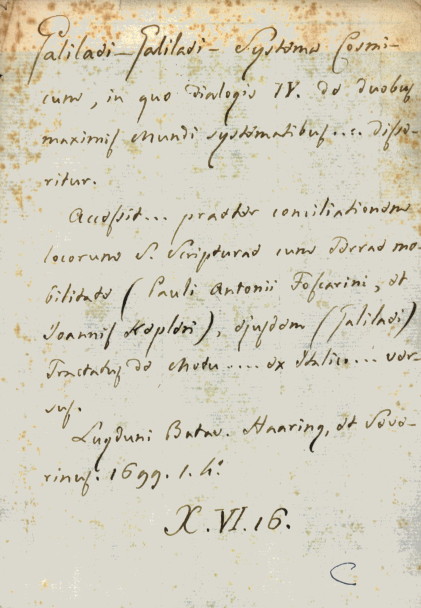 Galilaei-Galilaei- Systema Cosmi-
cum, in quo dialogis IV. de duobus
maximis Mundi systematibus... disse-
ritur.
Accessit... praeter conciliationem
locorum S. Scripturae cum Terrae mo-
bilitate (Pauli Antonii Foscarini, et
Joannis Kepleri), ejusdem (Galilaei)
Tractatus de Motu.... ex Italico... ver-
sus.
Lugduni Batav. Haaring, et Seve-
rinus. 1699. 1. 4.o
X. VI. 16.
C